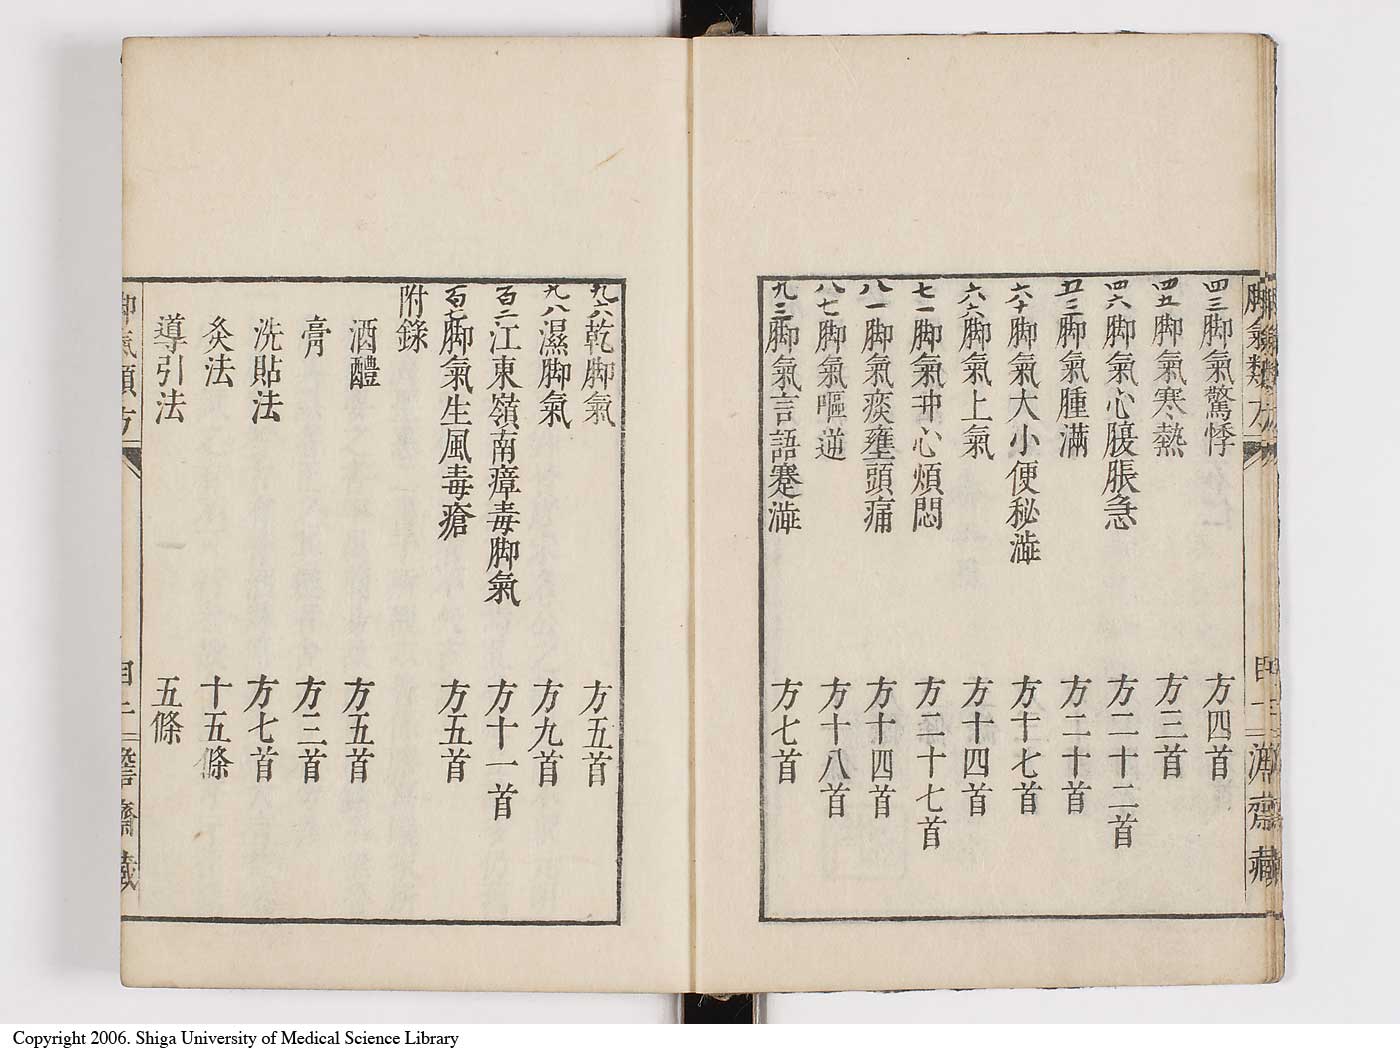 四三脚氣驚悸 方四首
四五脚氣寒熱 方三首
四六脚氣心腹脹急 方二十二首
五三脚氣腫滿 方二十首
六十脚氣大小便秘澁 方十七首
六六脚氣上氣 方十四首
七一脚氣冲心煩悶 方二十七首
八一脚氣痰壅頭痛 方十四首
八七脚氣嘔逆 方十八首
九三脚氣言語蹇澁 方七首
九六乾脚氣 方五首
九八濕脚氣 方九首
百二江東嶺南瘴毒脚氣 方十一首
百七脚氣生風毒瘡 方五首
附錄
酒醴 方五首
膏 方三首
洗貼法 方七首
灸法 十五條
導引法 五條
脚氣類方 目 二 齋藏
Copyright 2006. Shiga University of Medical Science Library